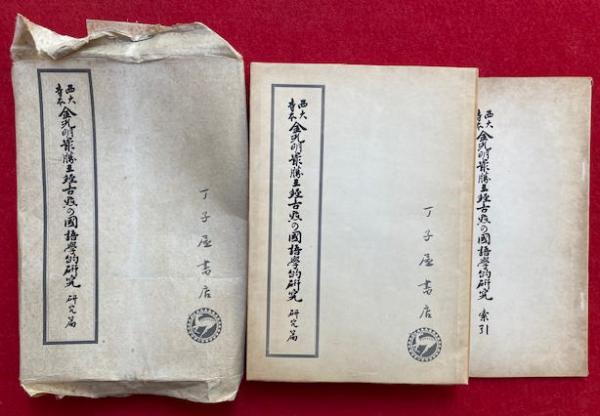 西大寺本 金光明最勝王經古點の國語學的研究 研究篇
丁子屋書店
西大寺本 金光明最勝王經古點の國語學的研究 研究篇
丁子屋書店
西大寺本 金光明最勝王經古點の國語學的研究 索引